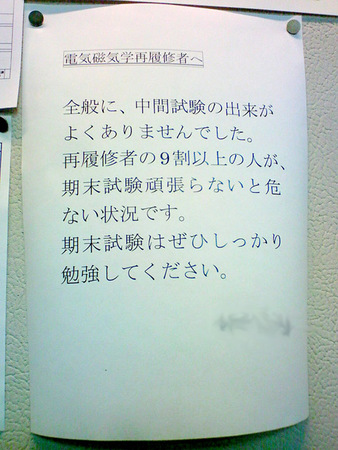 電気磁気学再履修者へ
全般に、中間試験の出来が
よくありませんでした。
再履修者の9割以上の人が、
期末試験頑張らないと危
ない状況です。
期末試験はぜひしっかり
勉強してください。